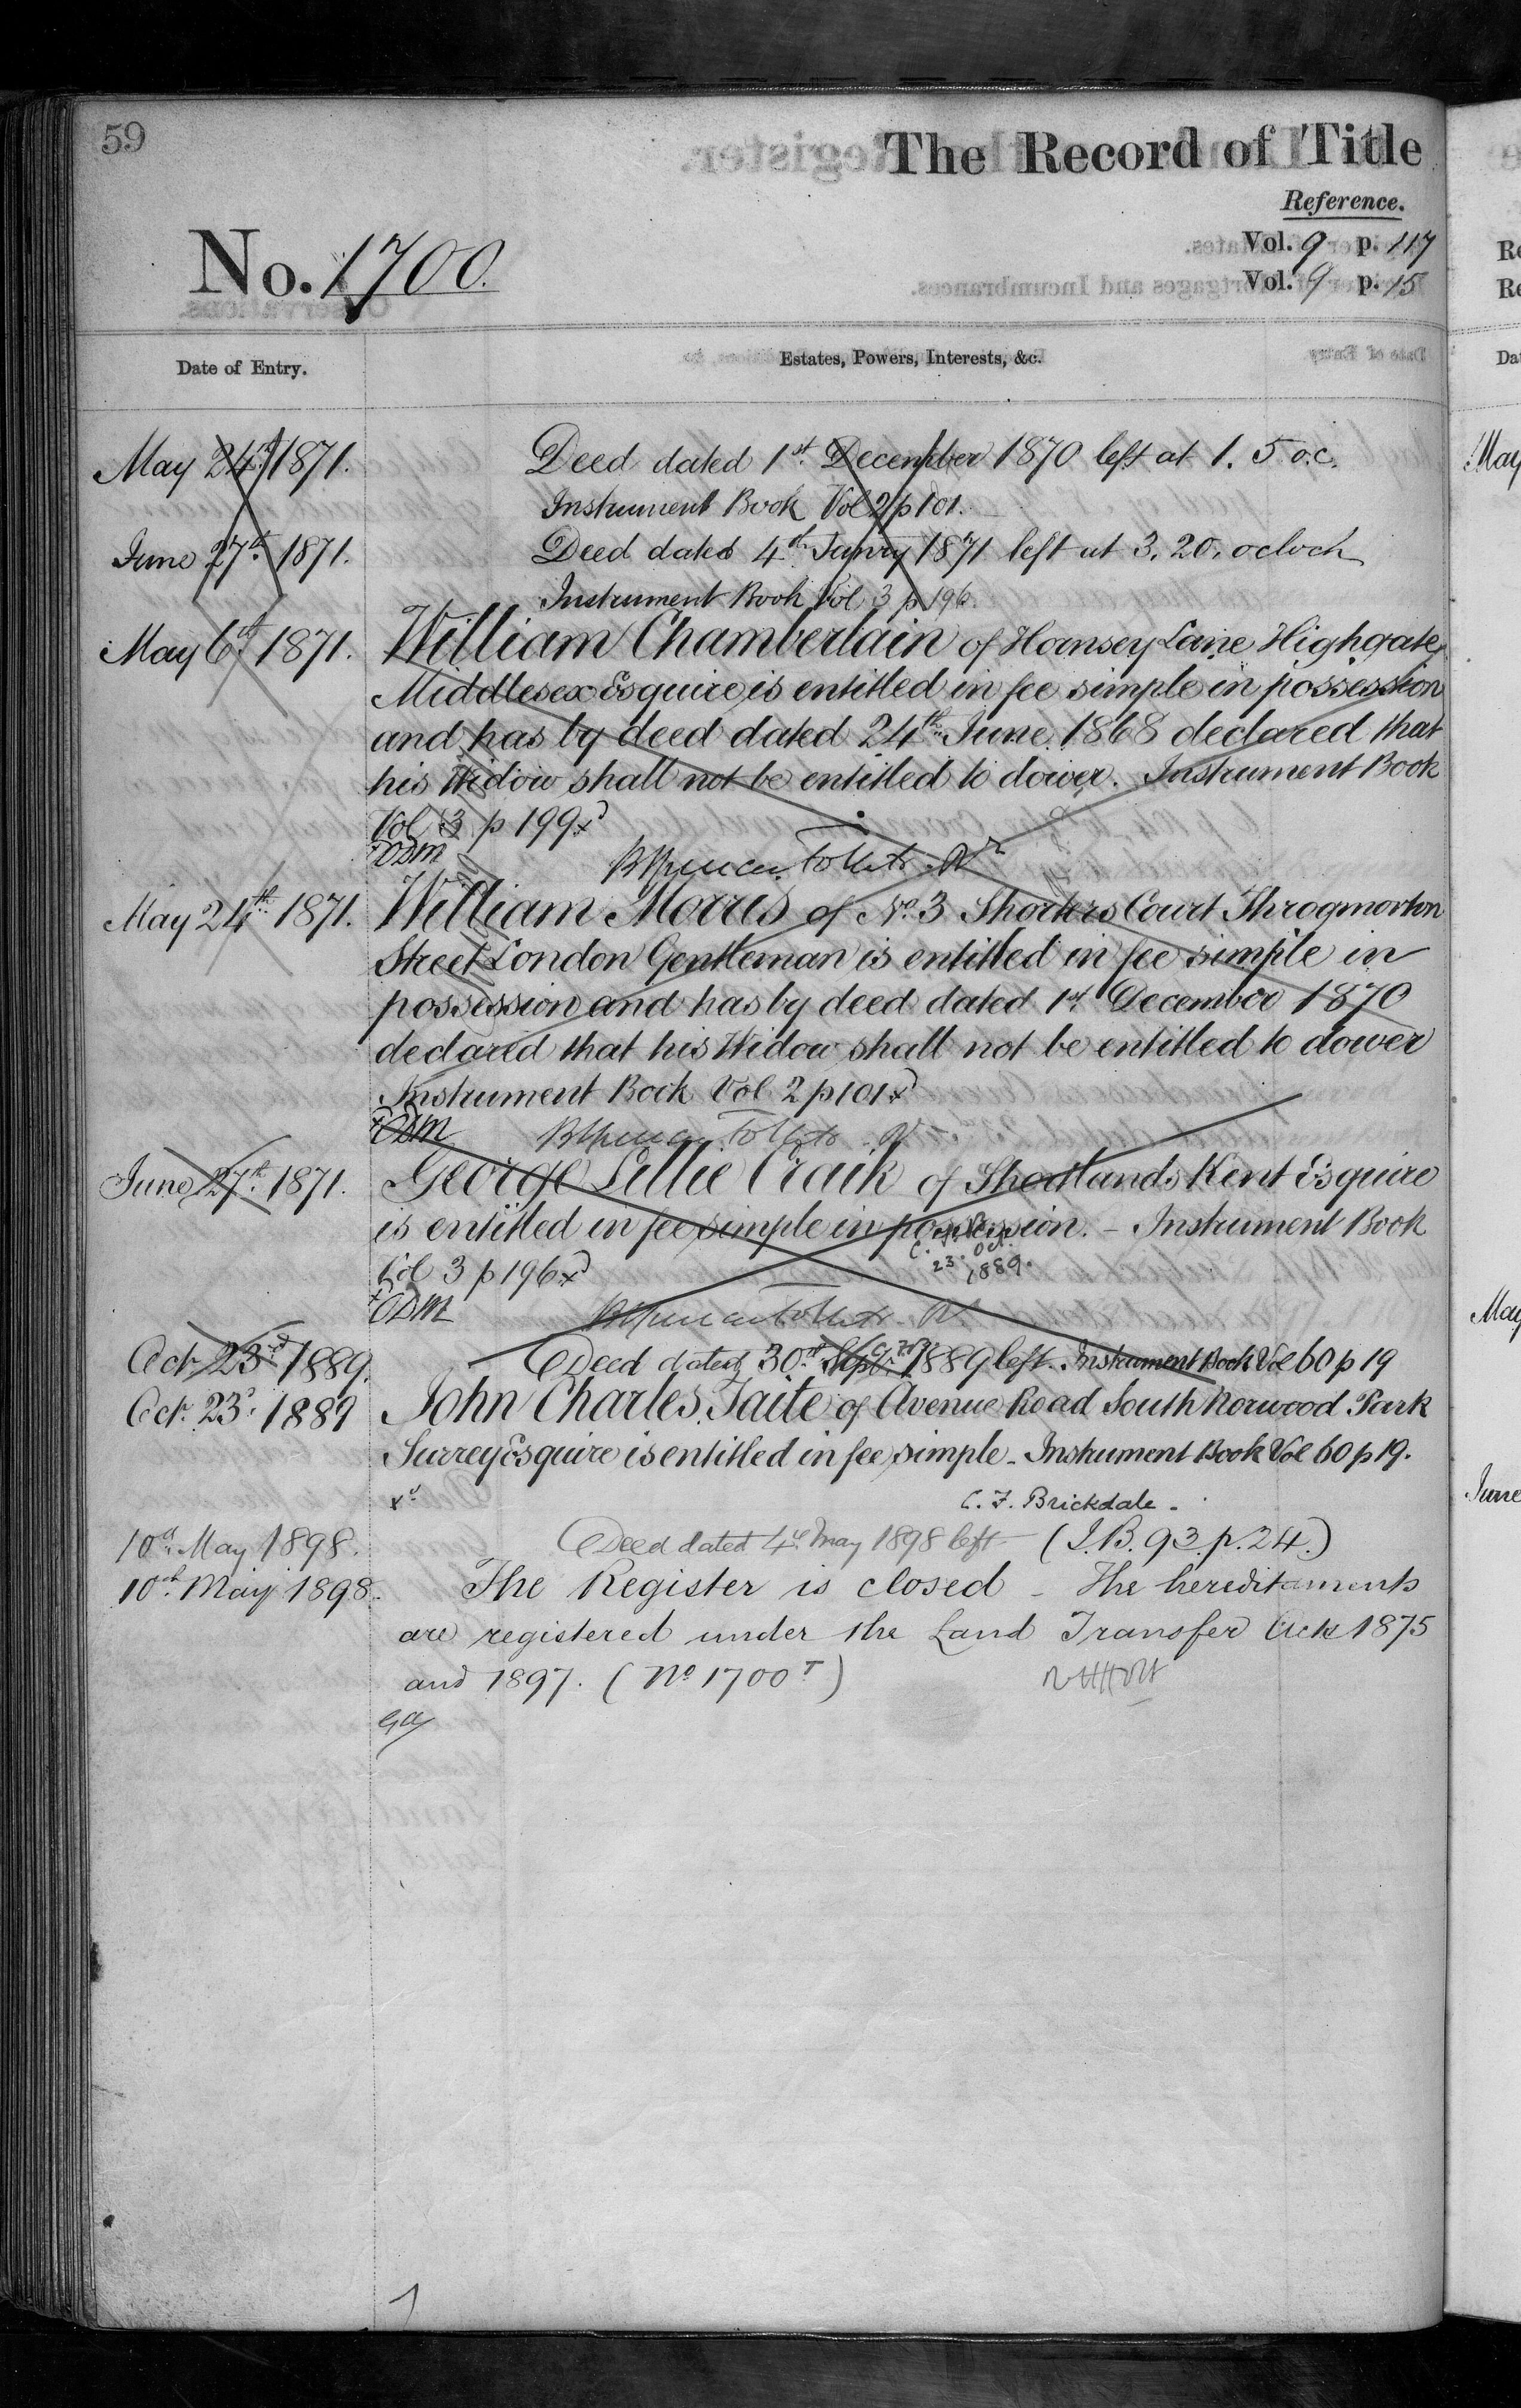 59
The Record of Title
Reference.
No. 1700.
Vol. 9 p. 117
Vol. 9 p. 15
Date of Entry.
Estates, Powers, Interests, &c.
May 24th 1871. Deed dated 1st December 1870 left at 1. 5 o.c.
Instrument Book Vol 2 p 101.
June 27th 1871. Deed dated 4th Janry 1871 left at 3. 20. oclock
Instrument Book Vol 3 p 196.
May 6th 1871. William Chamberlain of Hornsey Lane Highgate
Middlesex Esquire is entitled in fee simple in possession
and has by deed dated 24th June 1868 declared that
his Widow shall not be entitled to dower. Instrument Book
Vol 3 p 199 xd
ODM
May 24th 1871. William Morris of No. 3 Shorters Court Throgmorton
Street London Gentleman is entitled in fee simple in
possession and has by deed dated 1st December 1870
declared that his Widow shall not be entitled to dower
Instrument Book Vol 2 p 101 xd
ODM
June 27th 1871. George Lillie Craik of Shortlands Kent Esquire
is entitled in fee simple in possession. – Instrument Book
23. Oct.
1889.
Vol 3 p 196 xd
ODM
Oct 23rd 1889. Deed dated 30th Septr 1889 left. Instrument Book Vol 60 p 19
Oct. 23d 1889 John Charles Taite of Avenue Road South Norwood Park
Surrey Esquire is entitled in fee simple - Instrument Book Vol 60 p 19.
xd C. F. Brickdale -
10th May 1898. Deed dated 4th May 1898 left (I.B. 93. p. 24.)
10th May 1898. The Register is closed - The hereditaments
are registered under the Land Transfer Acts 1875
and 1897. (No 1700 T)
May
May
June